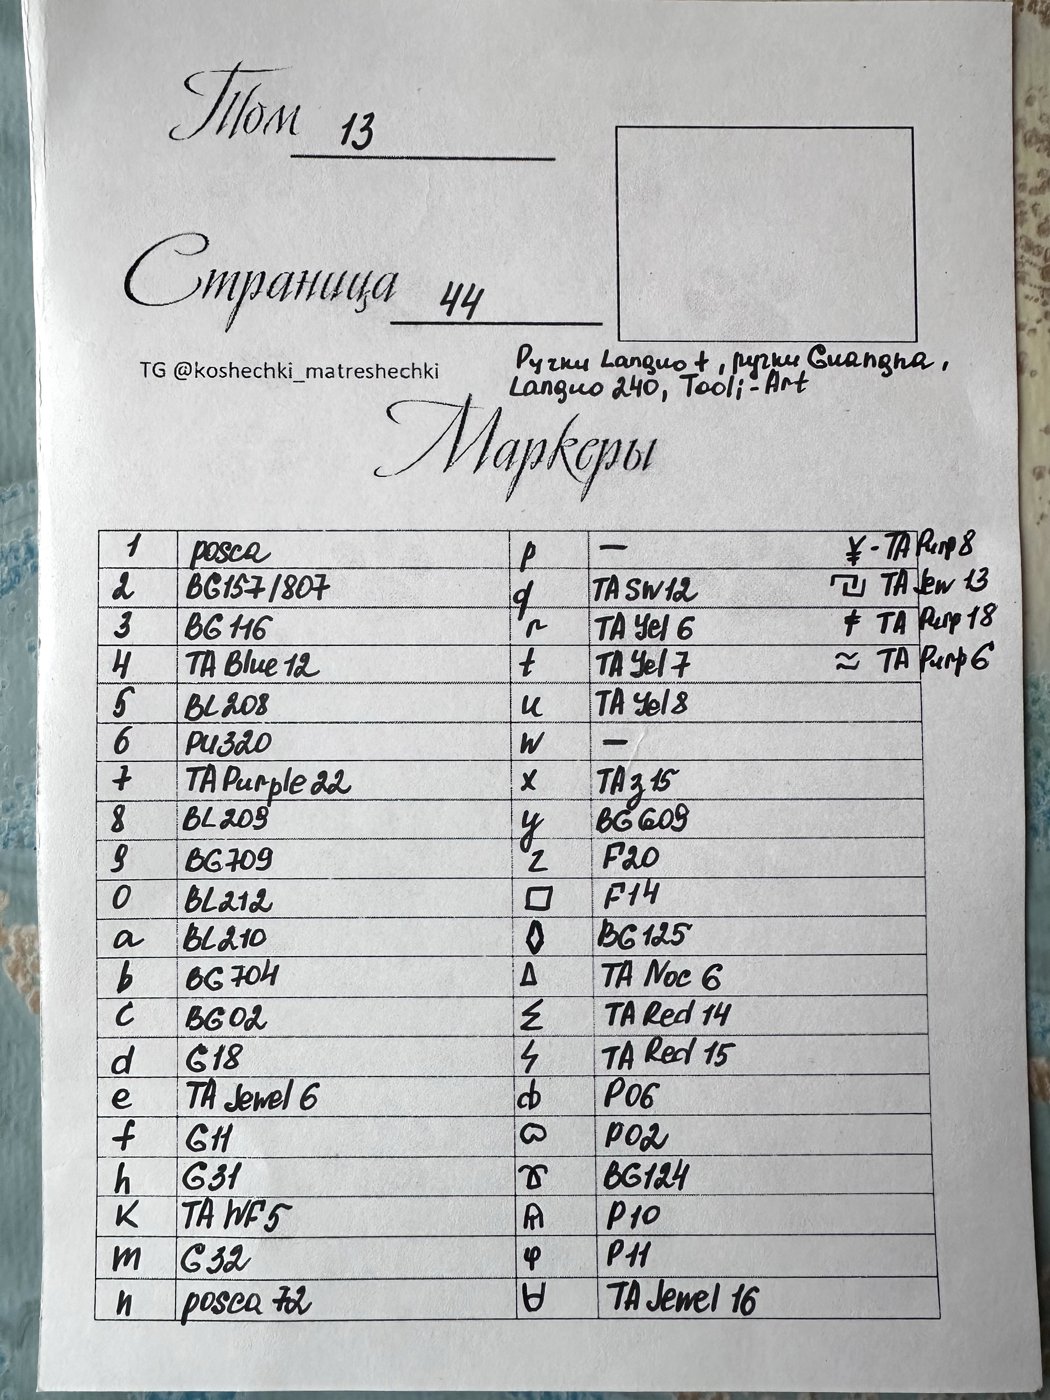 Том 13
Страница 44
TG @koshechki_matreshechki
Ручки Languo +, ручки Guangna,
Languo 240, Tooli-Art
Маркеры
1 posca p — ¥ - TA Purp 8
2 BG157/807 q TA SW12 TA Jew 13
3 BG 116 r TA Yel 6 ≠ TA Purp 18
4 TA Blue 12 t TA Yel 7 ≈ TA Purp 6
5 BL208 u TA Yel 8
6 PU320 w —
7 TA Purple 22 x TA 15
8 BL209 y BG609
9 BG709 z F20
0 BL212 □ F14
a BL210 ◊ BG125
b BG704 Δ TA Noc 6
c BG02 Σ TA Red 14
d G18 ϟ TA Red 15
e TA Jewel 6 ф P06
f G11 P02
h G31 ♉ BG124
K TA WF5 P10
m G32 φ P11
n posca 72 ∀ TA Jewel 16